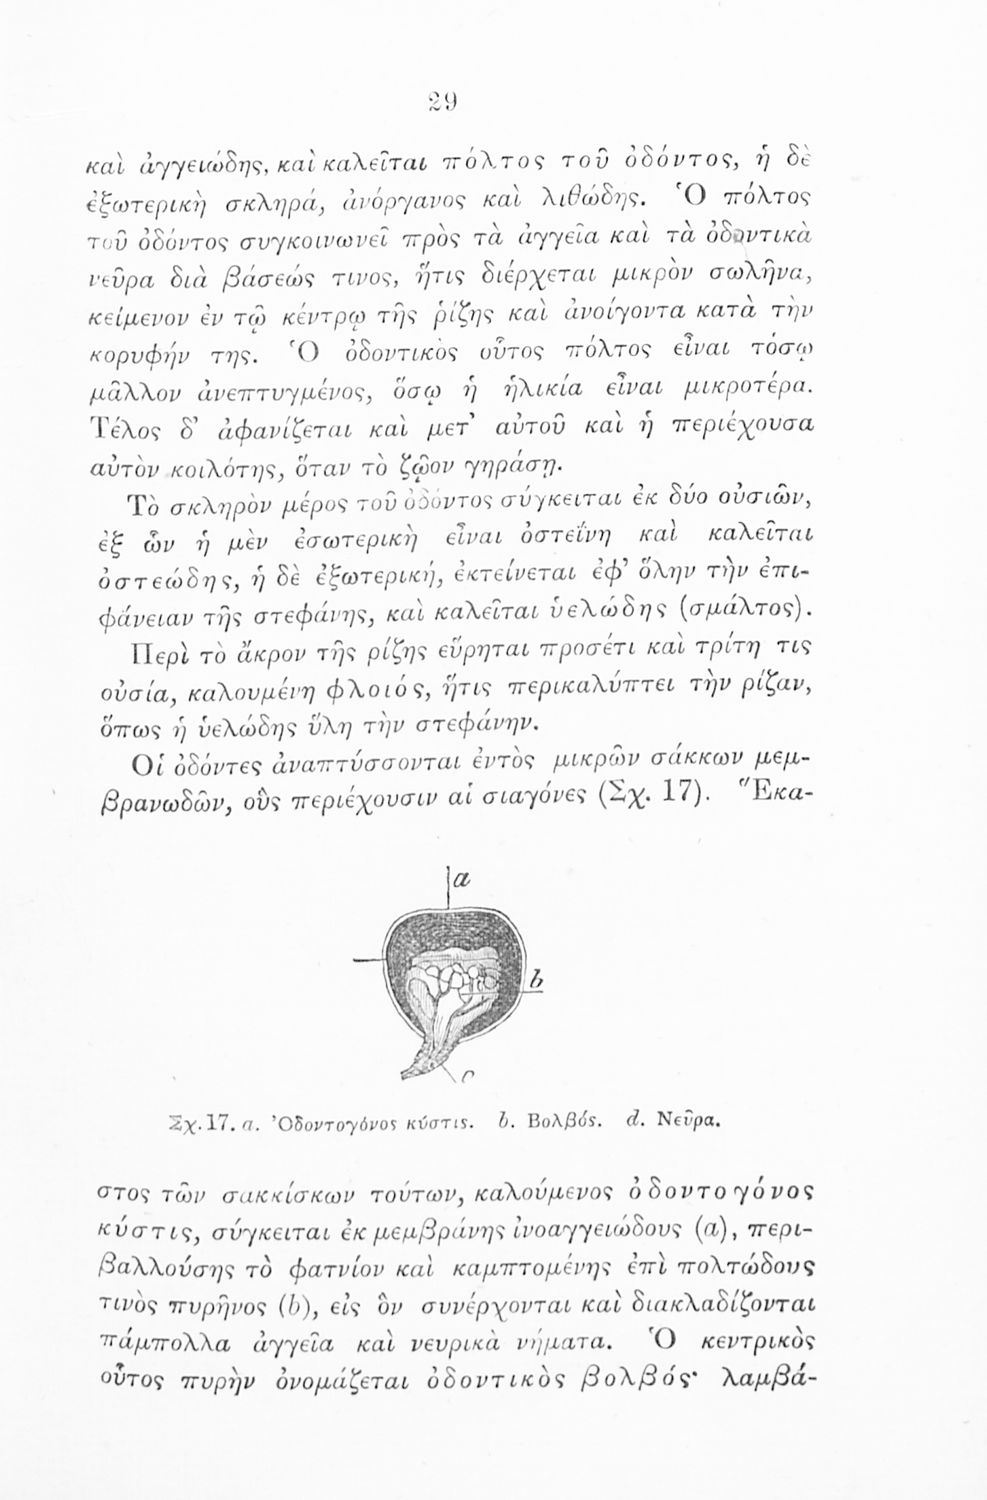 29
καὶ ἀγγειώδης, καὶ καλεῖται πόλτος τοῦ ὀδόντος, ἡ δὲ
ἐξωτερικὴ σκληρά, ἀνόργανος καὶ λιθώδης. Ὁ πόλτος
τοῦ ὀδόντος συγκοινωνεῖ πρὸς τὰ ἀγγεῖα καὶ τὰ ὀδοντικὰ
νεῦρα διὰ βάσεώς τινος, ἥτις διέρχεται μικρὸν σωλῆνα,
κείμενον ἐν τῷ κέντρῳ τῆς ῥίζης καὶ ἀνοίγοντα κατὰ τὴν
κορυφήν της. Ὁ ὀδοντικὸς οὗτος πόλτος εἶναι τόσῳ
μᾶλλον ἀνεπτυγμένος, ὅσῳ ἡ ἡλικία εἶναι μικροτέρα.
Τέλος δ’ ἀφανίζεται καὶ μετ’ αὐτοῦ καὶ ἡ περιέχουσα
αὐτὸν κοιλότης, ὅταν τὸ ζῷον γηράσῃ.
Τὸ σκληρὸν μέρος τοῦ ὀδόντος σύγκειται ἐκ δύο οὐσιῶν,
ἐξ ὧν ἡ μὲν ἐσωτερικὴ εἶναι ὀστεΐνη καὶ καλεῖται
ὀστεώδης, ἡ δὲ ἐξωτερική, ἐκτείνεται ἐφ’ ὅλην τὴν ἐπι-
φάνειαν τῆς στεφάνης, καὶ καλεῖται ὑελώδης (σμάλτος).
Περὶ τὸ ἄκρον τῆς ρίζης εὕρηται προσέτι καὶ τρίτη τις
οὐσία, καλουμένη φλοιός, ἥτις περικαλύπτει τὴν ρίζαν,
ὅπως ἡ ὑελώδης ὕλη τὴν στεφάνην.
Οἱ ὀδόντες ἀναπτύσσονται ἐντὸς μικρῶν σάκκων μεμ-
βρανωδῶν, οὓς περιέχουσιν αἱ σιαγόνες (Σχ. 17). Ἕκα-
a
b
c
Σχ. 17. a. Ὀδοντογόνος κύστις. b. Βολβός. d. Νεῦρα.
στος τῶν σακκίσκων τούτων, καλούμενος ὀδοντογόνος
κύστις, σύγκειται ἐκ μεμβράνης ἰνοαγγειώδους (a), περι-
βαλλούσης τὸ φατνίον καὶ καμπτομένης ἐπὶ πολτώδους
τινὸς πυρῆνος (b), εἰς ὃν συνέρχονται καὶ διακλαδίζονται
πάμπολλα ἀγγεῖα καὶ νευρικὰ νήματα. Ὁ κεντρικὸς
οὗτος πυρὴν ὀνομάζεται ὀδοντικὸς βολβός· λαμβά-